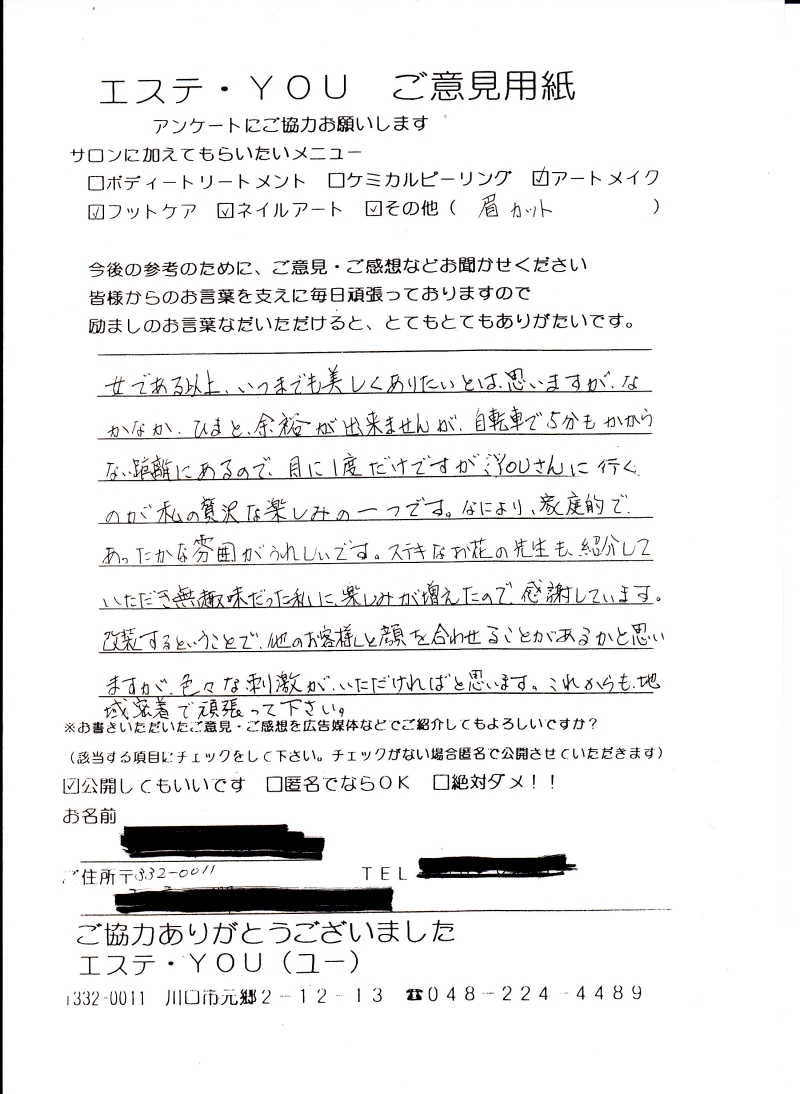 エステ・YOU ご意見用紙
アンケートにご協力お願いします
サロンに加えてもらいたいメニュー
□ボディートリートメント □ケミカルピーリング ☑アートメイク
☑フットケア ☑ネイルアート ☑その他( 眉カット )
今後の参考のために、ご意見・ご感想などお聞かせください
皆様からのお言葉を支えに毎日頑張っておりますので
励ましのお言葉なだいただけると、とてもとてもありがたいです。
女である以上、いつまでも美しくありたいとは、思いますが、な
かなか、ひまと、余裕が出来ませんが、自転車で5分もかから
ない距離にあるので、月に1度だけですが、YOUさんに行く
のが私の贅沢な楽しみの一つです。なにより、家庭的で、
あったかな雰囲がうれしいです。ステキなお花の先生も、紹介して
いただき無趣味だった私に、楽しみが増えたので、感謝しています。
改装するということで、他のお客様と顔を合わせることがあるかと思い
ますが、色々な刺激が、いただければと思います。これからも、地
域密着で頑張って下さい。
※お書きいただいたご意見・ご感想を広告媒体などでご紹介してもよろしいですか?
(該当する項目にチェックをして下さい。チェックがない場合匿名で公開させていただきます)
☑公開してもいいです □匿名でならOK □絶対ダメ!!
お名前
ご住所〒332-0011 TEL
ご協力ありがとうございました
エステ・YOU(ユー)
332-0011 川口市元郷2-12-13 ☎048-224-4489